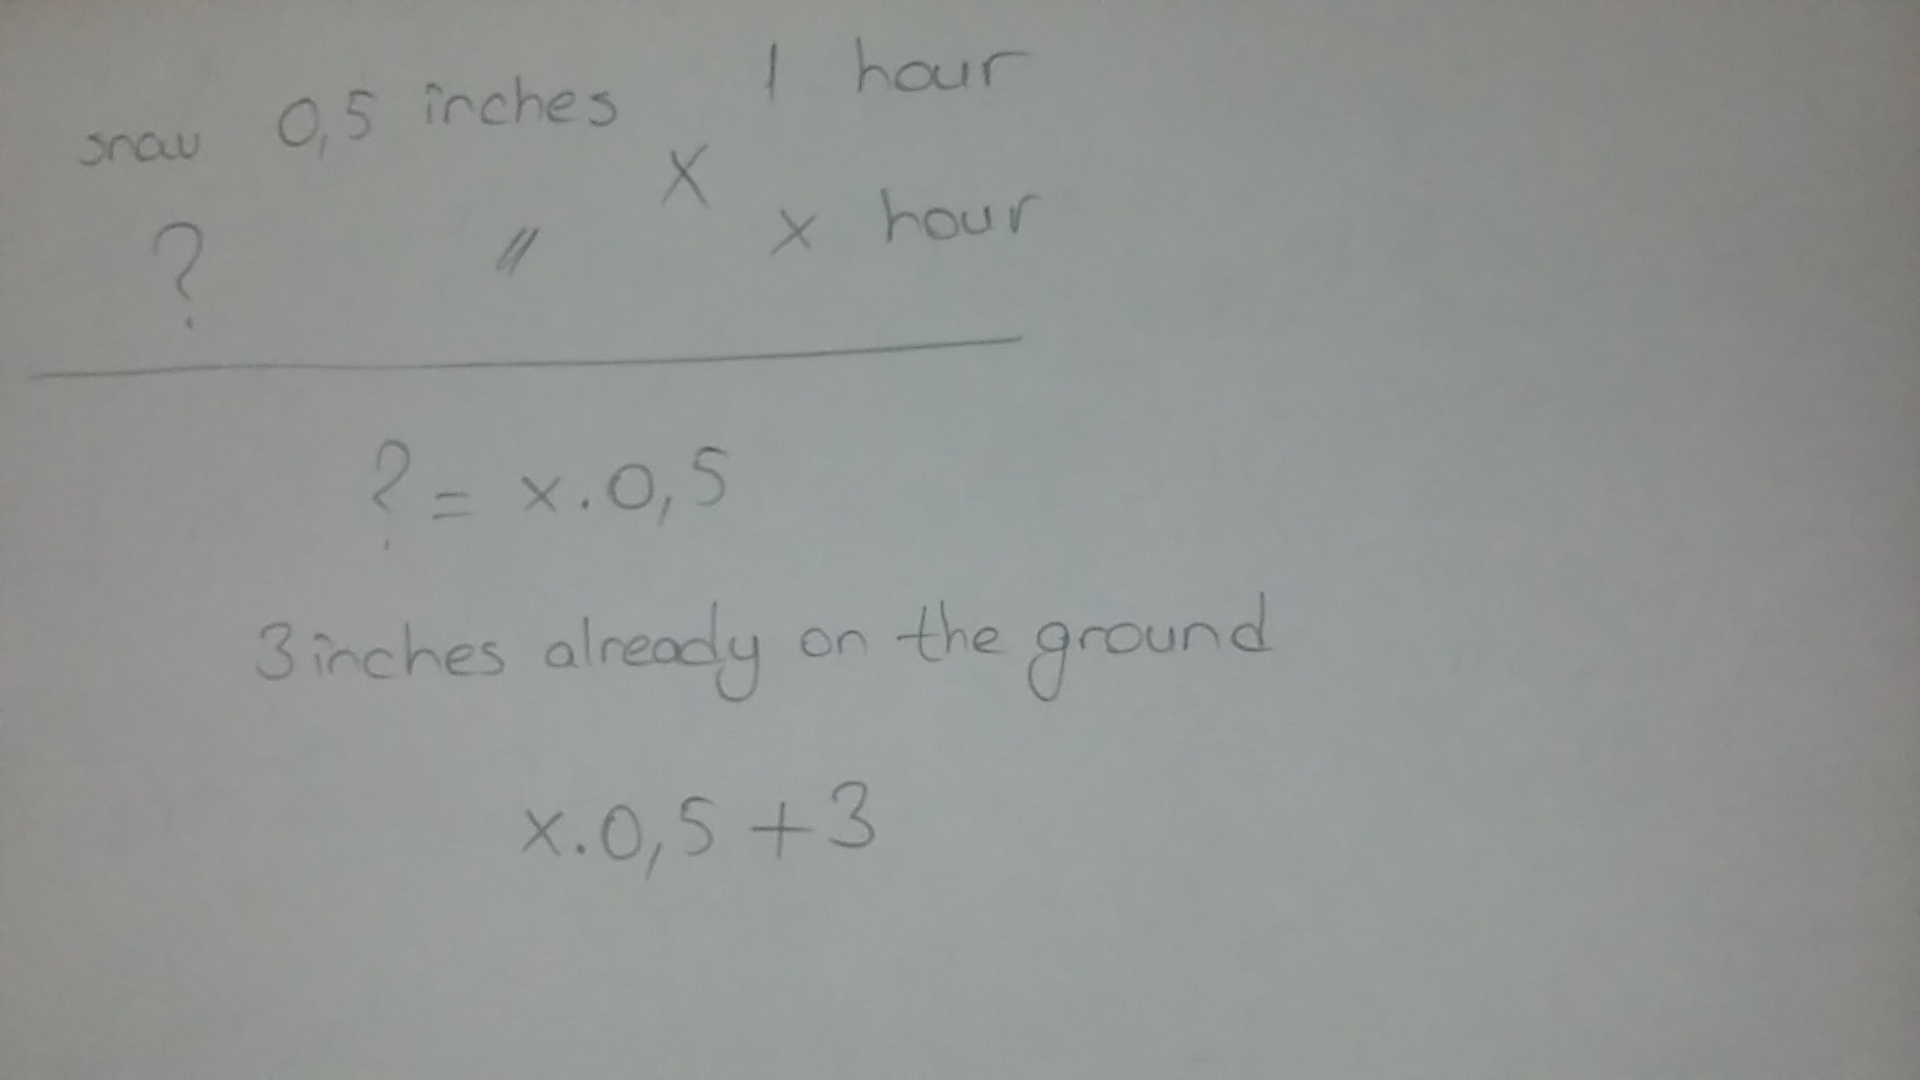 snow 0,5 inches 1 hour
X
? " x hour
? = x . 0,5
3 inches already on the ground
x . 0,5 + 3